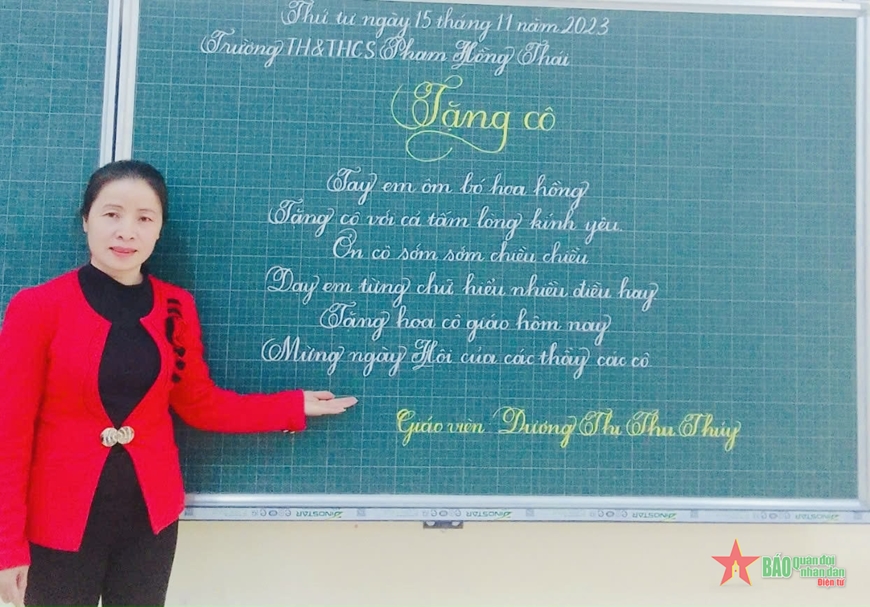 Thứ tư ngày 15 tháng 11 năm 2023
Trường TH&THCS Phạm Hồng Thái
Tặng cô
Tay em ôm bó hoa hồng
Tặng cô với cả tấm lòng kính yêu.
Ơn cô sớm sớm chiều chiều
Dạy em từng chữ hiểu nhiều điều hay
Tặng hoa cô giáo hôm nay
Mừng ngày Hội của các thầy các cô
Giáo viên Dương Thị Thu Thủy
BÁO quân đội nhân dân
Điện tử